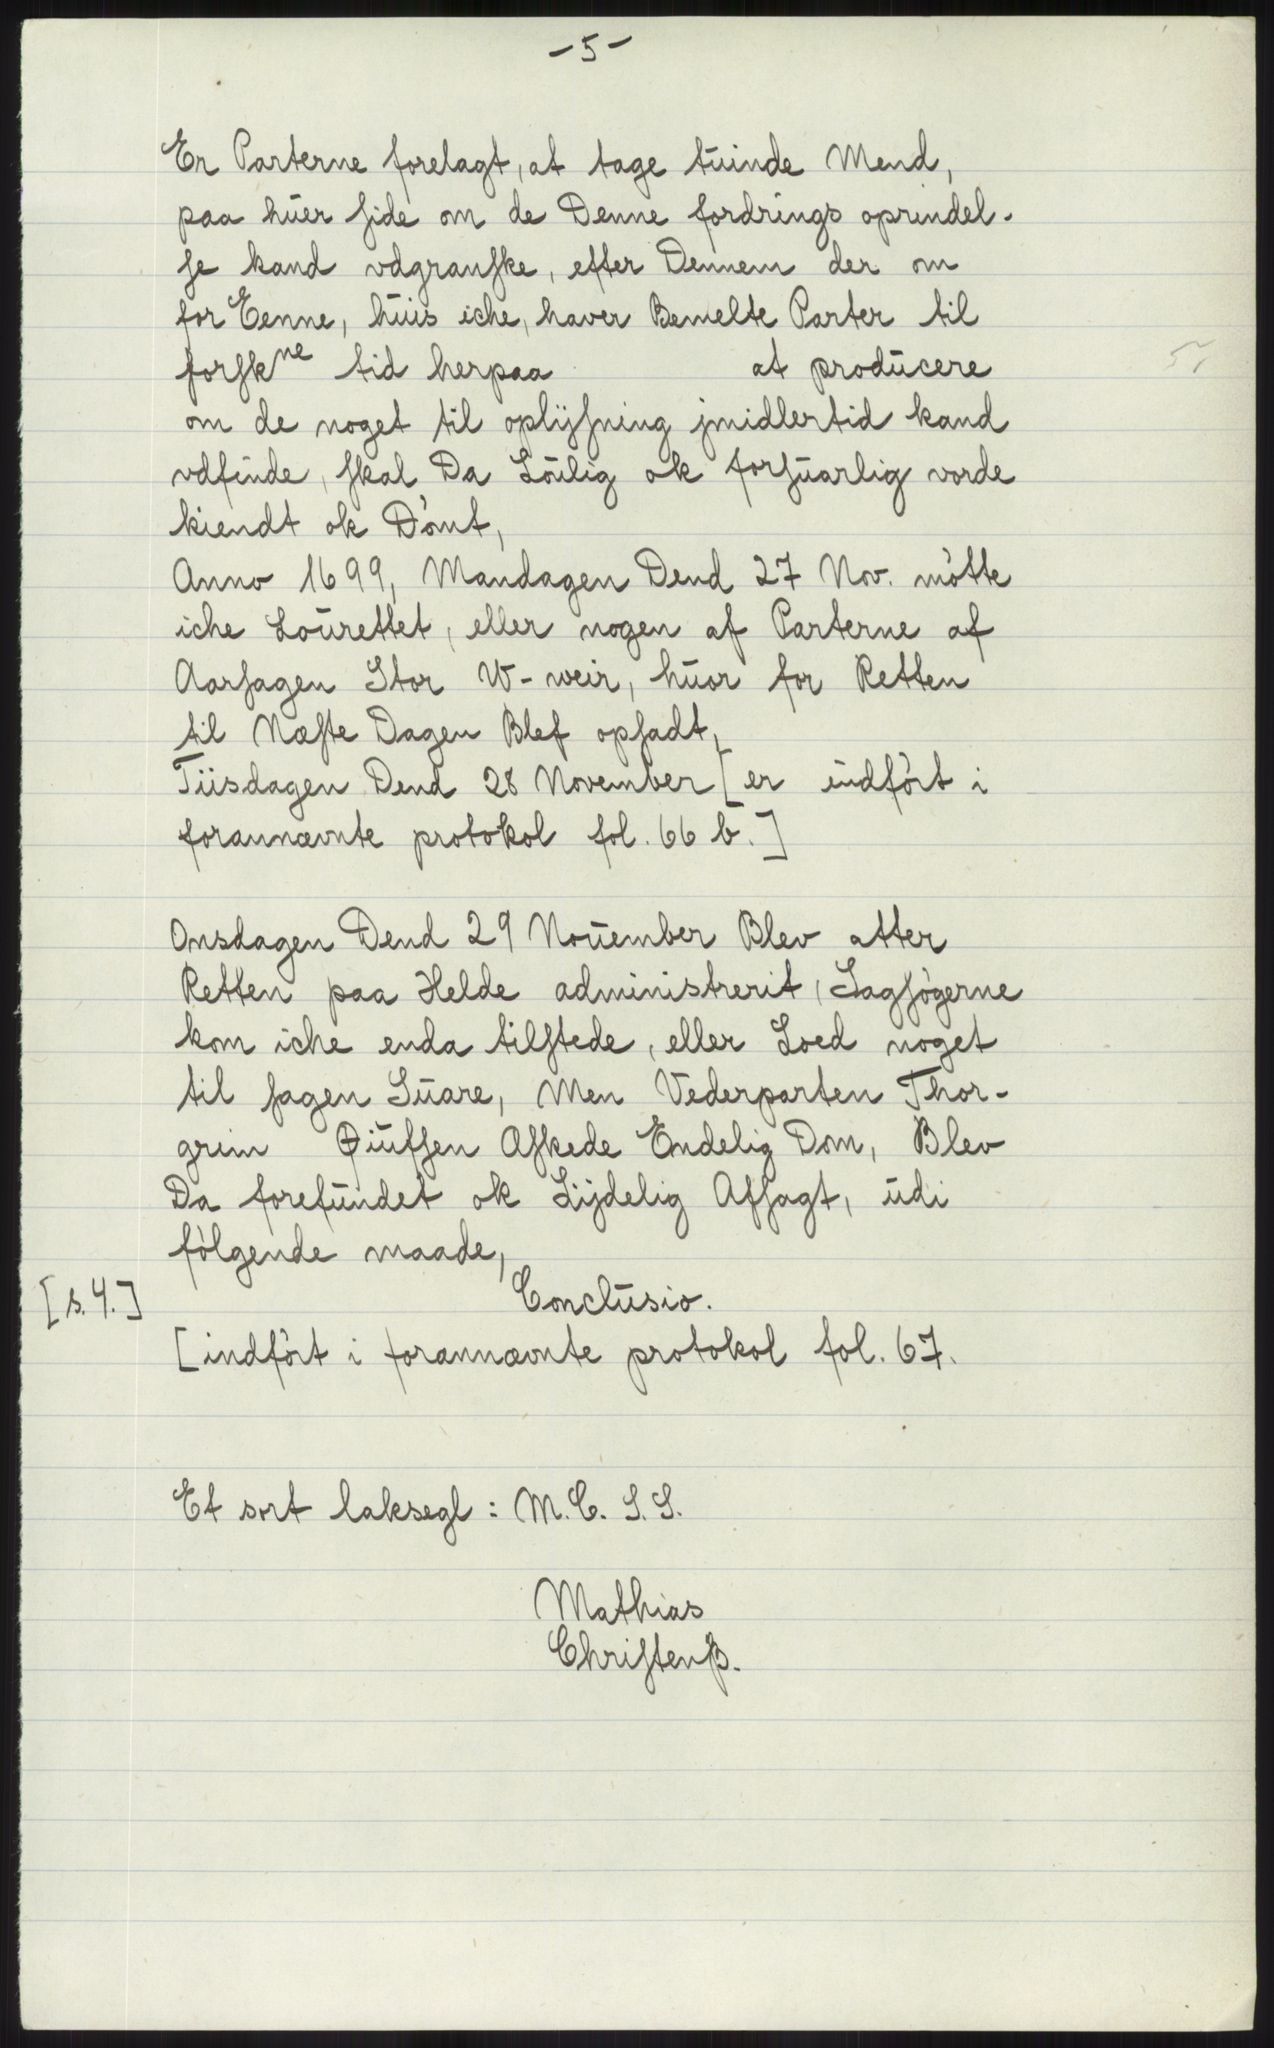 -5-
Er Parterne forelagt, at tage tůinde Mend,
paa hůer side om de Denne fordrings oprindel-
se kand vdgranske, efter Dennem der om
for Eenne, hůis iche, haver Bemelte Parter til
forskne tid herpaa at prodůcere
om de noget til oplÿsning jmidlertid kand
vdfinde, skal Da Loůlig ok forsůarlig vorde
kiendt ok Dòmt,
Anno 1699, Mandagen Dend 27 Nov. mòtte
iche Loůrettet, eller nogen af Parterne af
Aarsagen Stor W-weir, hůor for Retten
til Næste Dagen Blef opsadt,
Tiisdagen Dend 28 November [er indfòrt i
forannævnte protokol fol. 66 b.]
Onsdagen Dend 29 Noůember Blev atter
Retten paa Helde administrerit, Sagsògerne
kom iche enda tilstede, eller Loed noget
til sagen Sůare, Men Vederparten Thor-
grim Øiůfsen Askede Endelig Dom, Blev
Da forefůndet ok Lÿdelig Afsagt, ůdi
fòlgende maade,
[s. 4.] Conclůsio.
[indfòrt i forannævnte protokol fol. 67.
Et sort laksegl: M. C. S. S.
Mathias
Christenß.